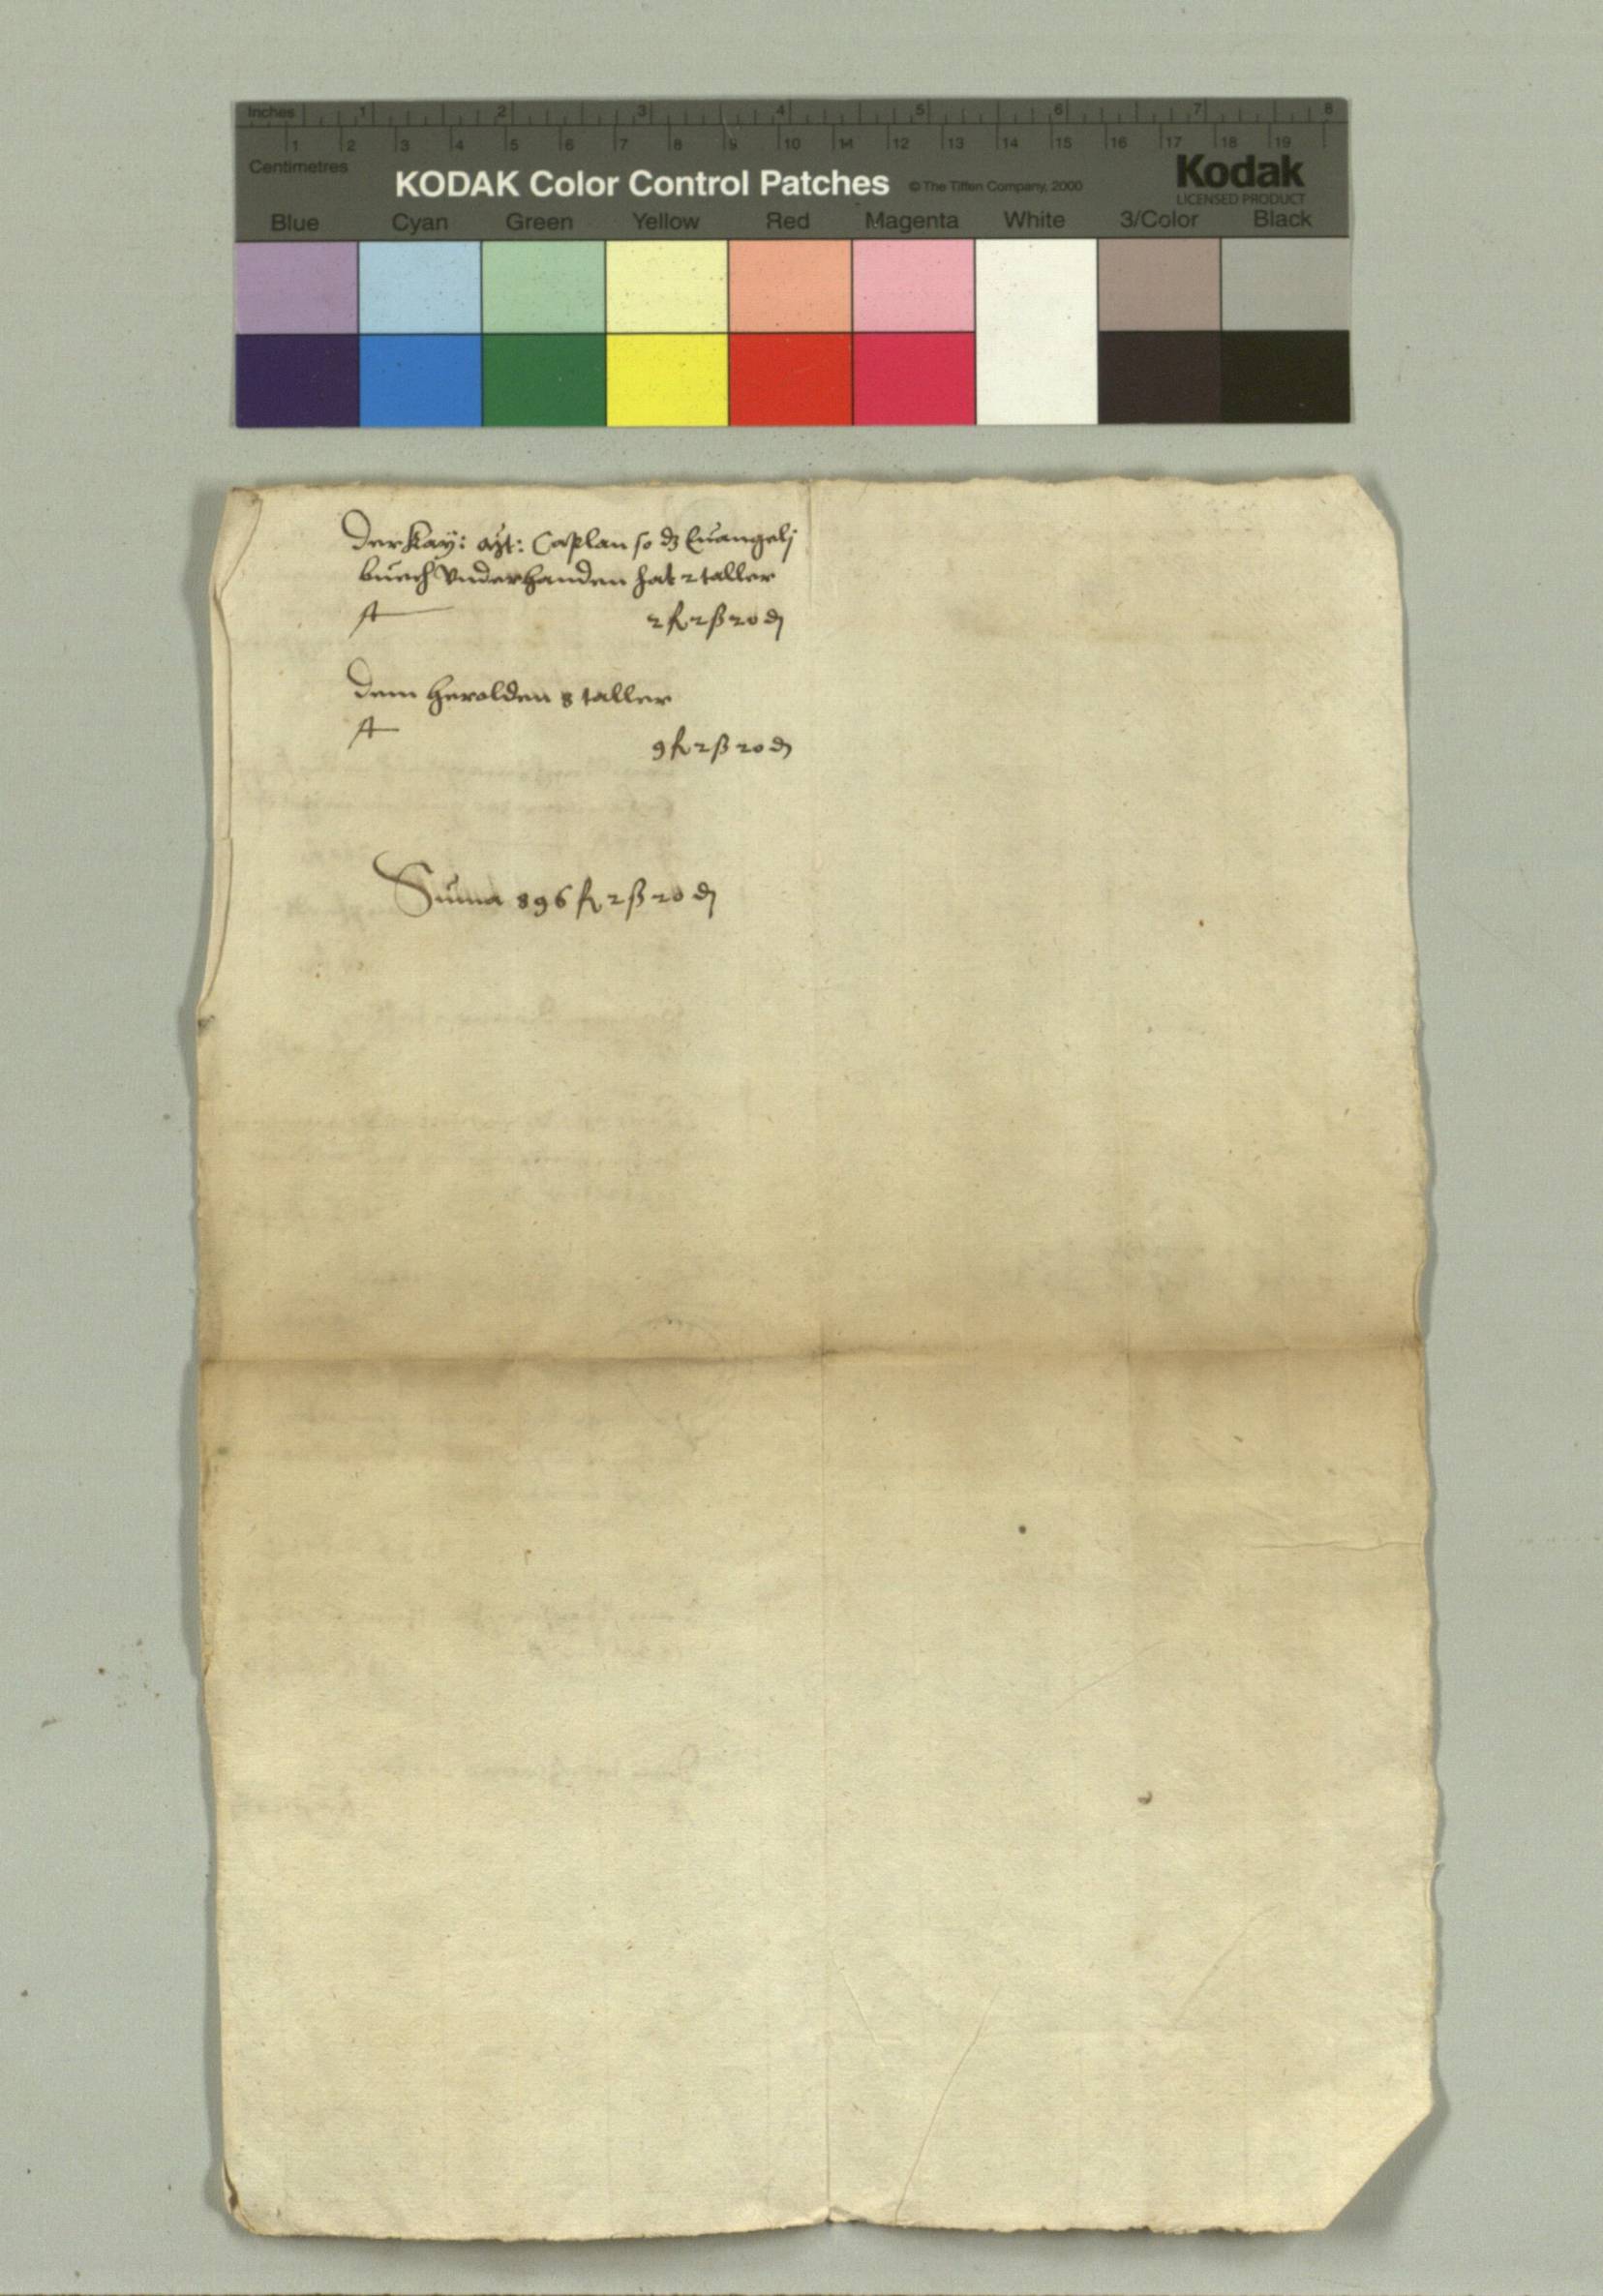 Inches 1 2 3 4 5 6 7 8
1 2 3 4 5 6 7 8 9 10 11 12 13 14 15 16 17 18 19
Centimetres
KODAK Color Control Patches © The Tiffen Company, 2000 Kodak
LICENSED PRODUCT
Blue Cyan Green Yellow Red Magenta White 3/Color Black
Der Kay: Mt: Caplan so dz Euangelj
buech Vnderhanden hat 2 taller
2 fl 2 ß 20 d
Dem Herolden 8 taller
9 fl 2 ß 20 d
Suma 896 fl 2 ß 20 d